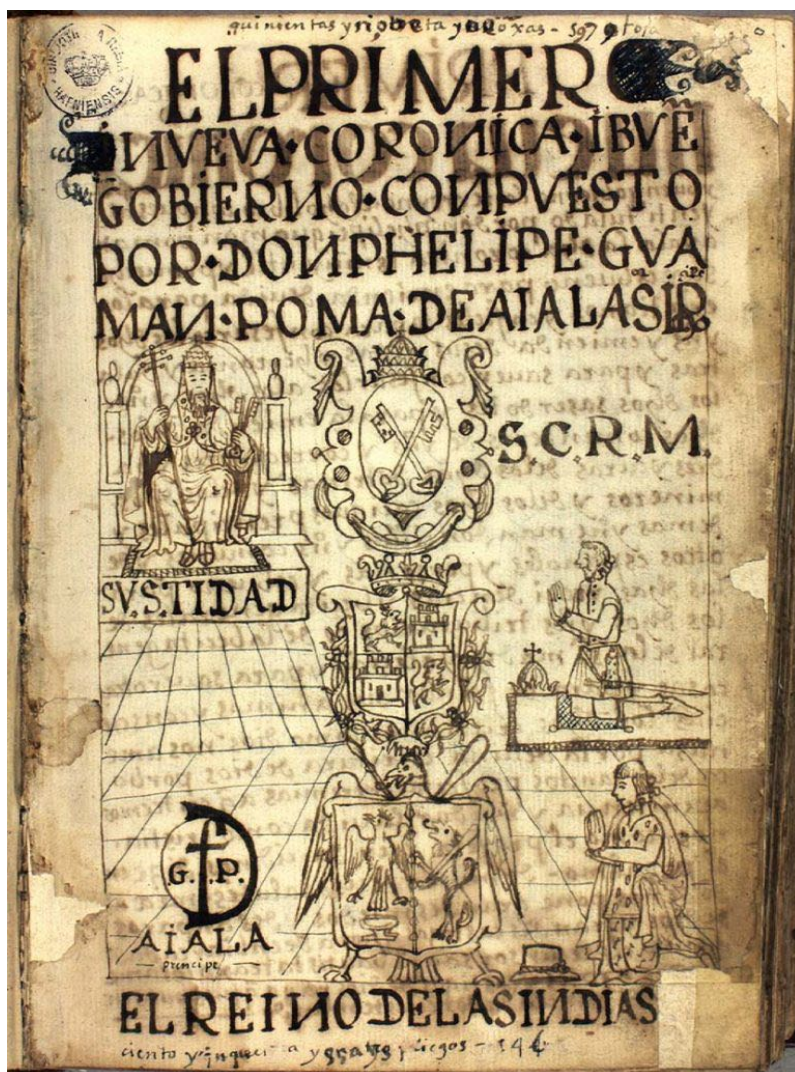 quinientas y
HAFNIENSIS
EL PRIMER
NVEVA · CORONICA · I BVĒ
GOBIERNO · CONPVESTO
POR · DON PHELIPE · GVA
MAN · POMA · DE AIALA
S.C.R.M.
SV.S.TIDAD
G. P.
AIALA
principe
EL REINO DE LAS INDIAS
ciento y pliegos - 146